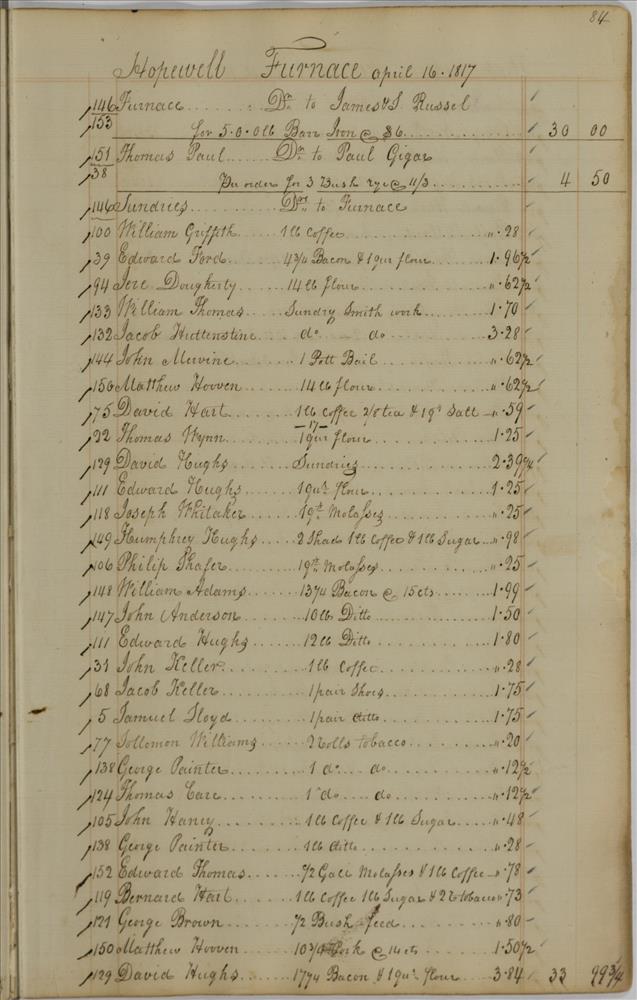 84
Hopewell Furnace April 16. 1817
146 Furnace ........ Dr. to James & S. Russel
153 for 5.0.0 lb Barr Iron @ $6 ........ 30 00
151 Thomas Paul ...... Dr. to Paul Gigar
38 Per order for 3 Bush rye @ 11/3 ........ 4 50
146 Sundries ........ Drs. to Furnace
100 William Griffith .... 1 lb Coffee ........ " .28
39 Edward Ford ...... 4 3/4 Bacon & 1 qur flour ...... 1.96 1/2
94 Jere Dougherty ..... 14 lb flour ........ " .62 1/2
133 William Thomas .... Sundry Smith work ...... 1.70
132 Jacob Huttenstine .... do .... do ........ 3.28
144 John Mervine ..... 1 Pott Bail ........ " .62 1/2
156 Matthew Hooven ..... 14 lb flour ........ " .62 1/2
75 David Hart ...... 1 lb Coffee 2/8 tea & 1 qt Salt " .59
—17—
22 Thomas Wynn ...... 1 qur flour ........ 1.25
129 David Hughs ...... Sundries ........ 2.39 3/4
111 Edward Hughs ..... 1 qur flour ........ 1.25
118 Joseph Whitaker .... 1 qt Molasses ........ " .25
149 Humphrey Hughs .... 2 Shad 1 lb Coffee & 1 lb Sugar .. " .98
106 Philip Shafer ..... 1 qt Molasses ........ " .25
148 William Adams ..... 13 1/4 Bacon @ 15 cts ..... 1.99
147 John Anderson ...... 10 lb Ditto ........ 1.50
111 Edward Hughs ...... 12 lb Ditto ........ 1.80
31 John Keller ....... 1 lb Coffee ........ " .28
68 Jacob Keller ....... 1 pair Shoes ........ 1.75
5 Samuel Lloyd ...... 1 pair ditto ........ 1.75
77 Sollomon Williams .... 2 Rolls tobacco ........ " .20
138 George Painter ...... 1 do .... do ........ " .12 1/2
124 Thomas Care ....... 1 do .... do ........ " .12 1/2
105 John Haney ....... 1 lb Coffee & 1 lb Sugar .... " .48
138 George Painter ...... 1 lb ditto ........ " .28
152 Edward Thomas ..... 1/2 Gall Molasses & 1 lb Coffee " .78
119 Bernard Hart ..... 1 lb Coffee 1 lb Sugar & 2 R tobacco " .73
121 George Brown ...... 1/2 Bush feed ........ " .80
150 Matthew Hooven ..... 10 3/4 Pork @ 14 cts ..... 1.50 1/2
129 David Hughs ...... 17 3/4 Bacon & 1 qur flour .... 3.84 33 99 3/4